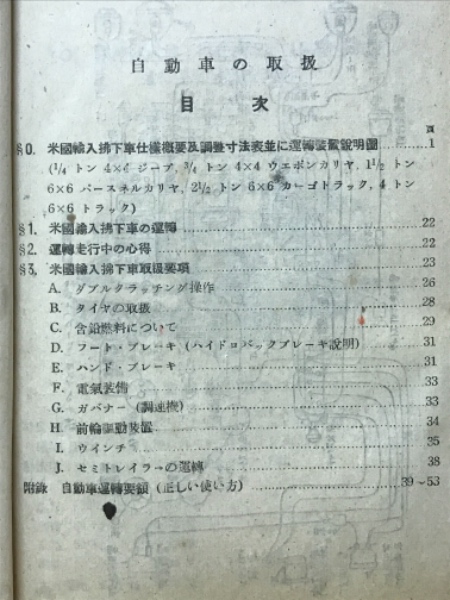 自動車の取扱
目次
頁
§0. 米國輸入拂下車仕樣概要及調整寸法表並に運轉裝置說明圖……1
(1/4 トン 4×4 ジープ, 3/4 トン 4×4 ウエポンカリヤ, 1 1/2 トン
6×6 パースネルカリヤ, 2 1/2 トン 6×6 カーゴトラック, 4 トン
6×6 トラック)
§1. 米國輸入拂下車の運轉……22
§2. 運轉走行中の心得……22
§3. 米國輸入拂下車取扱要項……23
A. ダブルクラッチング操作……26
B. タイヤの取扱……28
C. 含鉛燃料について……29
D. フート・ブレーキ (ハイドロバックブレーキ說明)……31
E. ハンド・ブレーキ……31
F. 電氣裝備……33
G. ガバナー (調速機)……33
H. 前輪驅動裝置……34
I. ウインチ……35
J. セミトレイラーの運轉……38
附錄 自動車運轉要領 (正しい使い方)……39～53